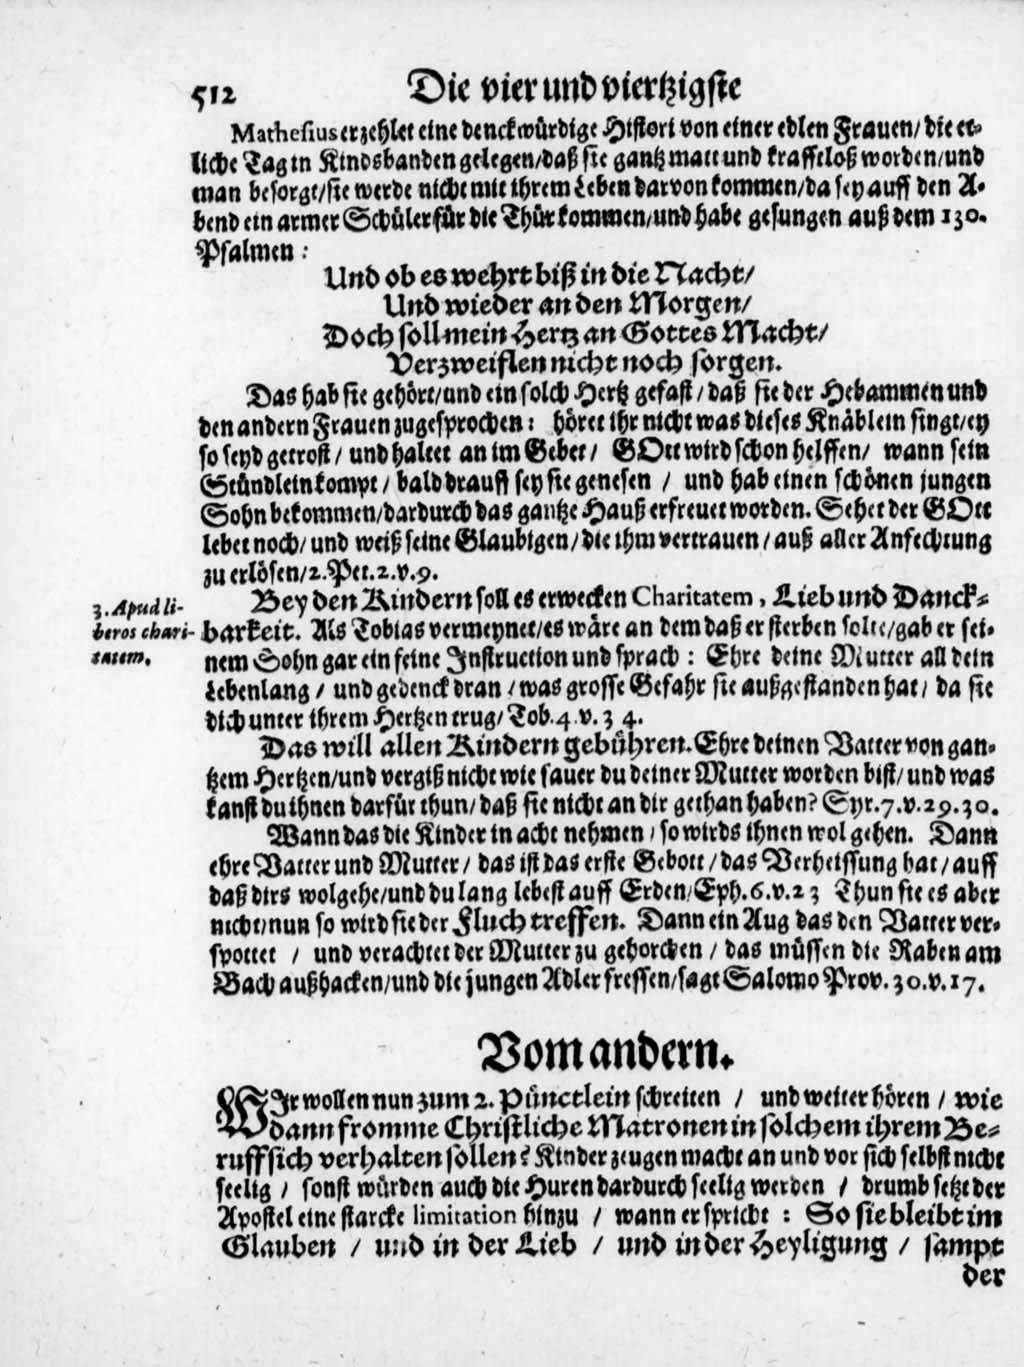 512 Die vier und viertzigste
Mathesius erzehlet eine denckwürdige Histori von einer edlen Frauen/ die et-
liche Tag in Kindsbanden gelegen/ daß sie gantz matt und krafftloß worden/ und
man besorgt/ sie werde nicht mit ihrem Leben darvon kommen/ da sey auff den A-
bend ein armer Schüler für die Thür kommen/ und habe gesungen auß dem 130.
Psalmen:
Und ob es wehrt biß in die Nacht/
Und wieder an den Morgen/
Doch soll mein Hertz an Gottes Macht/
Verzweiflen nicht noch sorgen.
Das hab sie gehört/ und ein solch Hertz gefast/ daß sie der Hebammen und
den andern Frauen zugesprochen: höret ihr nicht was dieses Knäblein singt/ ey
so seyd getrost/ und haltet an im Gebet/ GOtt wird schon helffen/ wann sein
Stündlein kompt/ bald drauff sey sie genesen/ und hab einen schönen jungen
Sohn bekommen/ dardurch das gantze Hauß erfreuet worden. Sehet der GOtt
lebet noch/ und weiß seine Glaubigen/ die ihm vertrauen/ auß aller Anfechtung
zu erlösen/ 2. Pet. 2. v. 9.
3. Apud li-
beros chari-
tatem.
Bey den Kindern soll es erwecken Charitatem, Lieb und Danck-
barkeit. Als Tobias vermeynet/ es wäre an dem daß er sterben solte/ gab er sei-
nem Sohn gar ein feine Instruction und sprach: Ehre deine Mutter all dein
Lebenlang/ und gedenck dran/ was grosse Gefahr sie außgestanden hat/ da sie
dich unter ihrem Hertzen trug/ Tob. 4. v. 3 4.
Das will allen Kindern gebühren. Ehre deinen Vatter von gan-
tzem Hertzen/ und vergiß nicht wie sauer du deiner Mutter worden bist/ und was
kanst du ihnen darfür thun/ daß sie nicht an dir gethan haben? Syr. 7. v. 29. 30.
Wann das die Kinder in acht nehmen/ so wirds ihnen wol gehen. Dann
ehre Vatter und Mutter/ das ist das erste Gebott/ das Verheissung hat/ auff
daß dirs wolgehe/ und du lang lebest auff Erden/ Eph. 6. v. 2 3 Thun sie es aber
nicht/ nun so wird sie der Fluch treffen. Dann ein Aug das den Vatter ver-
spottet/ und verachtet der Mutter zu gehorchen/ das müssen die Raben am
Bach außhacken/ und die jungen Adler fressen/ sagt Salomo Prov. 30. v. 17.
Vom andern.
WIr wollen nun zum 2. Pünctlein schreiten/ und weiter hören/ wie
dann fromme Christliche Matronen in solchem ihrem Be-
ruff sich verhalten sollen? Kinder zeugen macht an und vor sich selbst nicht
seelig/ sonst würden auch die Huren dardurch seelig werden/ drumb setzt der
Apostel eine starcke limitation hinzu/ wann er spricht: So sie bleibt im
Glauben/ und in der Lieb/ und in der Heyligung/ sampt
der